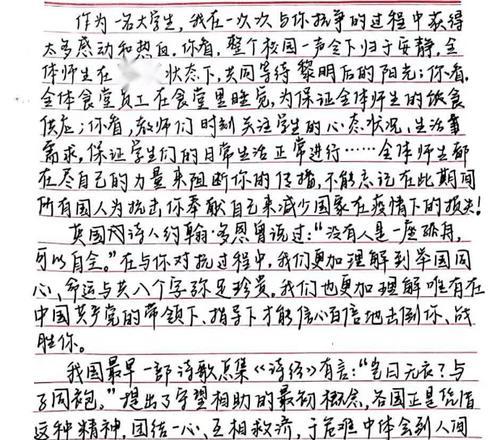 作为一名大学生,我在一次次与你抗争的过程中获得
太多感动和热血。你看,整个校园一声令下归于安静,全
体师生在 状态下,共同等待黎明后的阳光;你看,
全体食堂员工在食堂里睡觉,为保证全体师生的饮食
供应;你看,教师们时刻关注学生的心态状况、生活事
需求,保证学生们的日常生活正常进行……全体师生都
在尽自己的力量来阻断你的传播,不能忘记在此期间
所有国人为抗击你奉献自己来减少国家在疫情下的损失!
英国 诗人约翰·多恩曾说过:“没有人是一座孤舟,
可以自全。”在与你对抗过程中,我们更加理解到举国同
心、命运与共八个字弥足珍贵。我们也更加理解唯有在
中国共产党的带领下、指导下才能信心百倍地击倒你、战
胜你。
我国最早一部诗歌总集《诗经》有言:“岂曰无衣?与
子同袍。”提出了守望相助的最初概念,各国正是凭借
这种精神,团结一心、互相救济,于危难中体会到人间